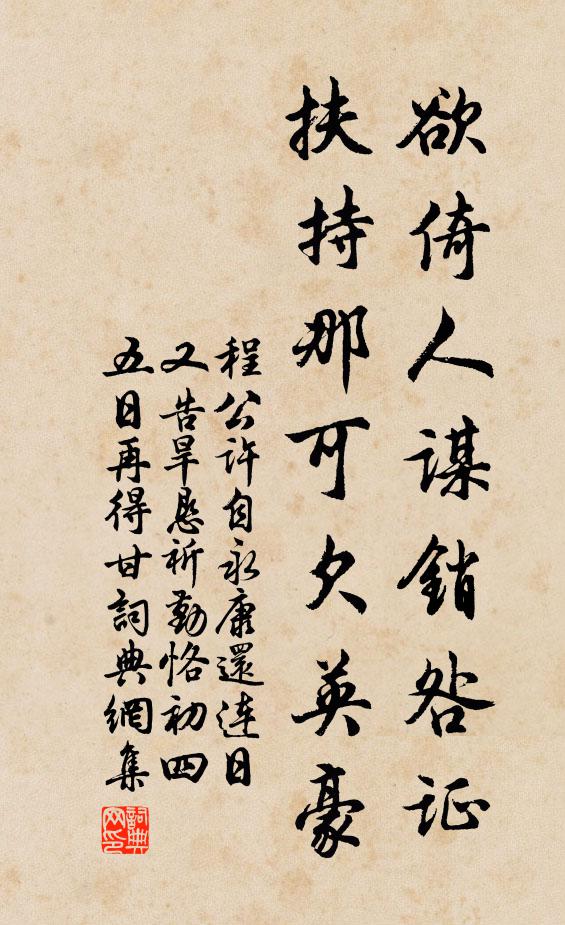 欲倚人謀銷咎证
扶持那可欠英豪
程公許自永康還连日
又告旱恳祈勤恪初四
五日再得甘詞典網集
詞典网印